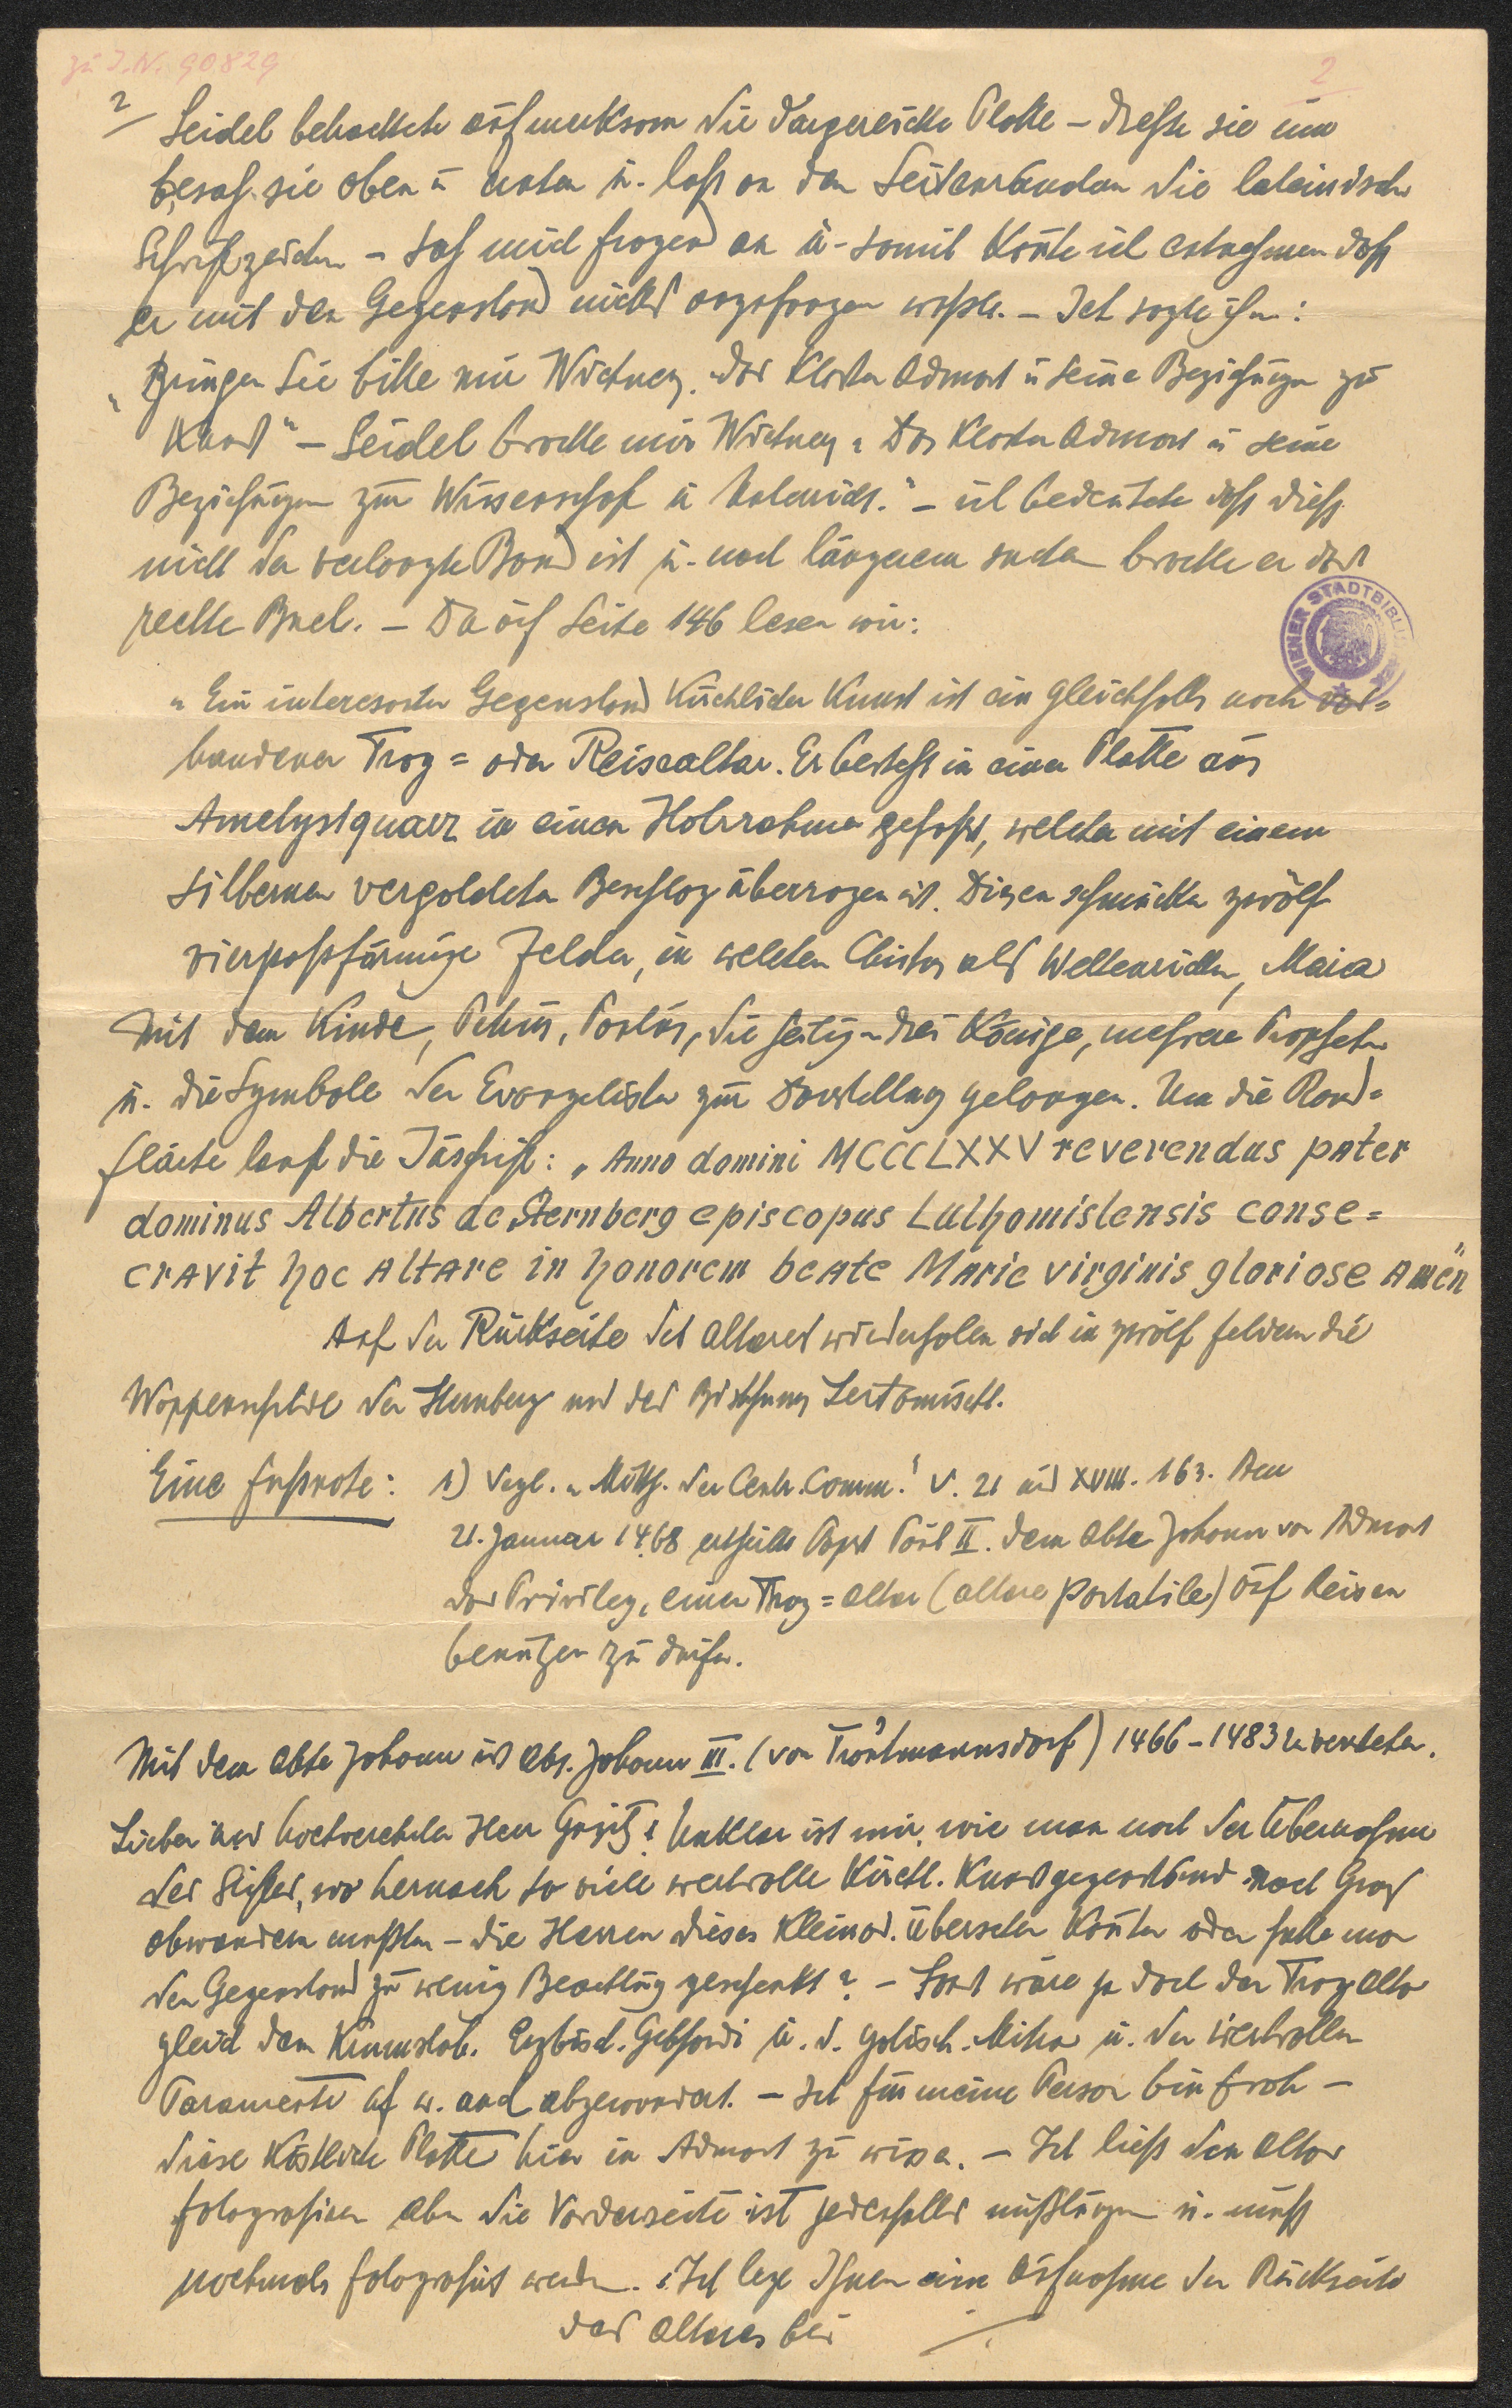 zu I.N. 90829
2
2/ Seidel betrachtete aufmerksam die dargereichte Platte – drehte sie um
besah sie oben u unten u. las an den Seitenrändern die lateinischen
Schriftzeichen – sah mich fragend an u – somit konte ich entnehmen dass
er mit den Gegenstand nichts anzufangen wusste. – Ich sagte ihm:
„Bringen Sie bitte mir Wichner, das Kloster Admont u seine Beziehungen zur
Kunst" – Seidel brachte mir Wichner „Das Kloster Admont u seine
Beziehungen zur Wissenschaft u Unterricht." – ich bedeutete dass diess
nicht der verlangte Band ist u. nach längerem suchen brachte er das
rechte Buch. – Da auf Seite 146 lesen wir:
WIENER STADTBIBLIOTHEK
„Ein interessanter Gegenstand kirchlicher Kunst ist ein gleichfalls noch vor=
handener Trag = oder Reisealtar. Er besteht in einer Platte aus
Ametystquarz in einen Holzrahmen gefasst, welcher mit einem
silbernen vergoldeten Beschlag überzogen ist. Diesen schmücken zwölf
vierpassförmige Felder, in welchen Christus als Weltenrichter, Maria
mit dem Kinde, Petrus, Paulus, die heiligen drei Könige, mehrere Propheten
u. die Symbole der Evangelisten zur Darstellung gelangen. Um die Rand=
fläche lauft die Inschrift: „Anno domini MCCCLXXV reverendus pater
dominus Albertus de Sternberg episcopus Luthomislensis conse=
cravit hoc altare in honorem beate Marie virginis gloriose Amen"
Auf der Rückseite des Altares wiederholen sich in zwölf feldern die
Wappenschilde der Sternberg und des Bisthums Leitomischl.
Eine Fußnote: 1) Vergl. „Mitth. der Centr. Comm." V. 21 und XVIII. 163. Am
21. Januar 1468 ertheilte Papst Paul II. dem Abte Johann von Admont
das Privileg, einen Trag = altar (altare portatile) auf Reisen
benützen zu dürfen.
Mit dem Abte Johann ist Abt. Johann III. (von Trautmannsdorf) 1466 – 1483 zu verstehen.
Lieber und hochverehrter Herr! Unklar ist mir, wie man nach der Übernahme
des Stiftes, wo hernach so viele wertvolle Kirchl. Kunstgegenstände nach Graz
abwandern mußten – die Herren dieses Kleinod übersehen konten oder hatte man
den Gegenstand zu wenig Beachtung geschenkt? – Sonst wäre ja doch der Tragaltar
gleich dem Krummstab. Erzbisch. Gebhardi u. d. gotisch. Mitra u. der wertvollen
Paramente auch abgewandert. – Ich für meine Person bin froh –
diese köstliche Platte hier in Admont zu wissen. – Ich ließ den Altar
fotografieren aber die Vorderseite ist jedenfalls mißlungen u. muß
nochmals fotografiert werden. Ich lege Ihnen eine Aufnahme der Rückseite
des Altares bei